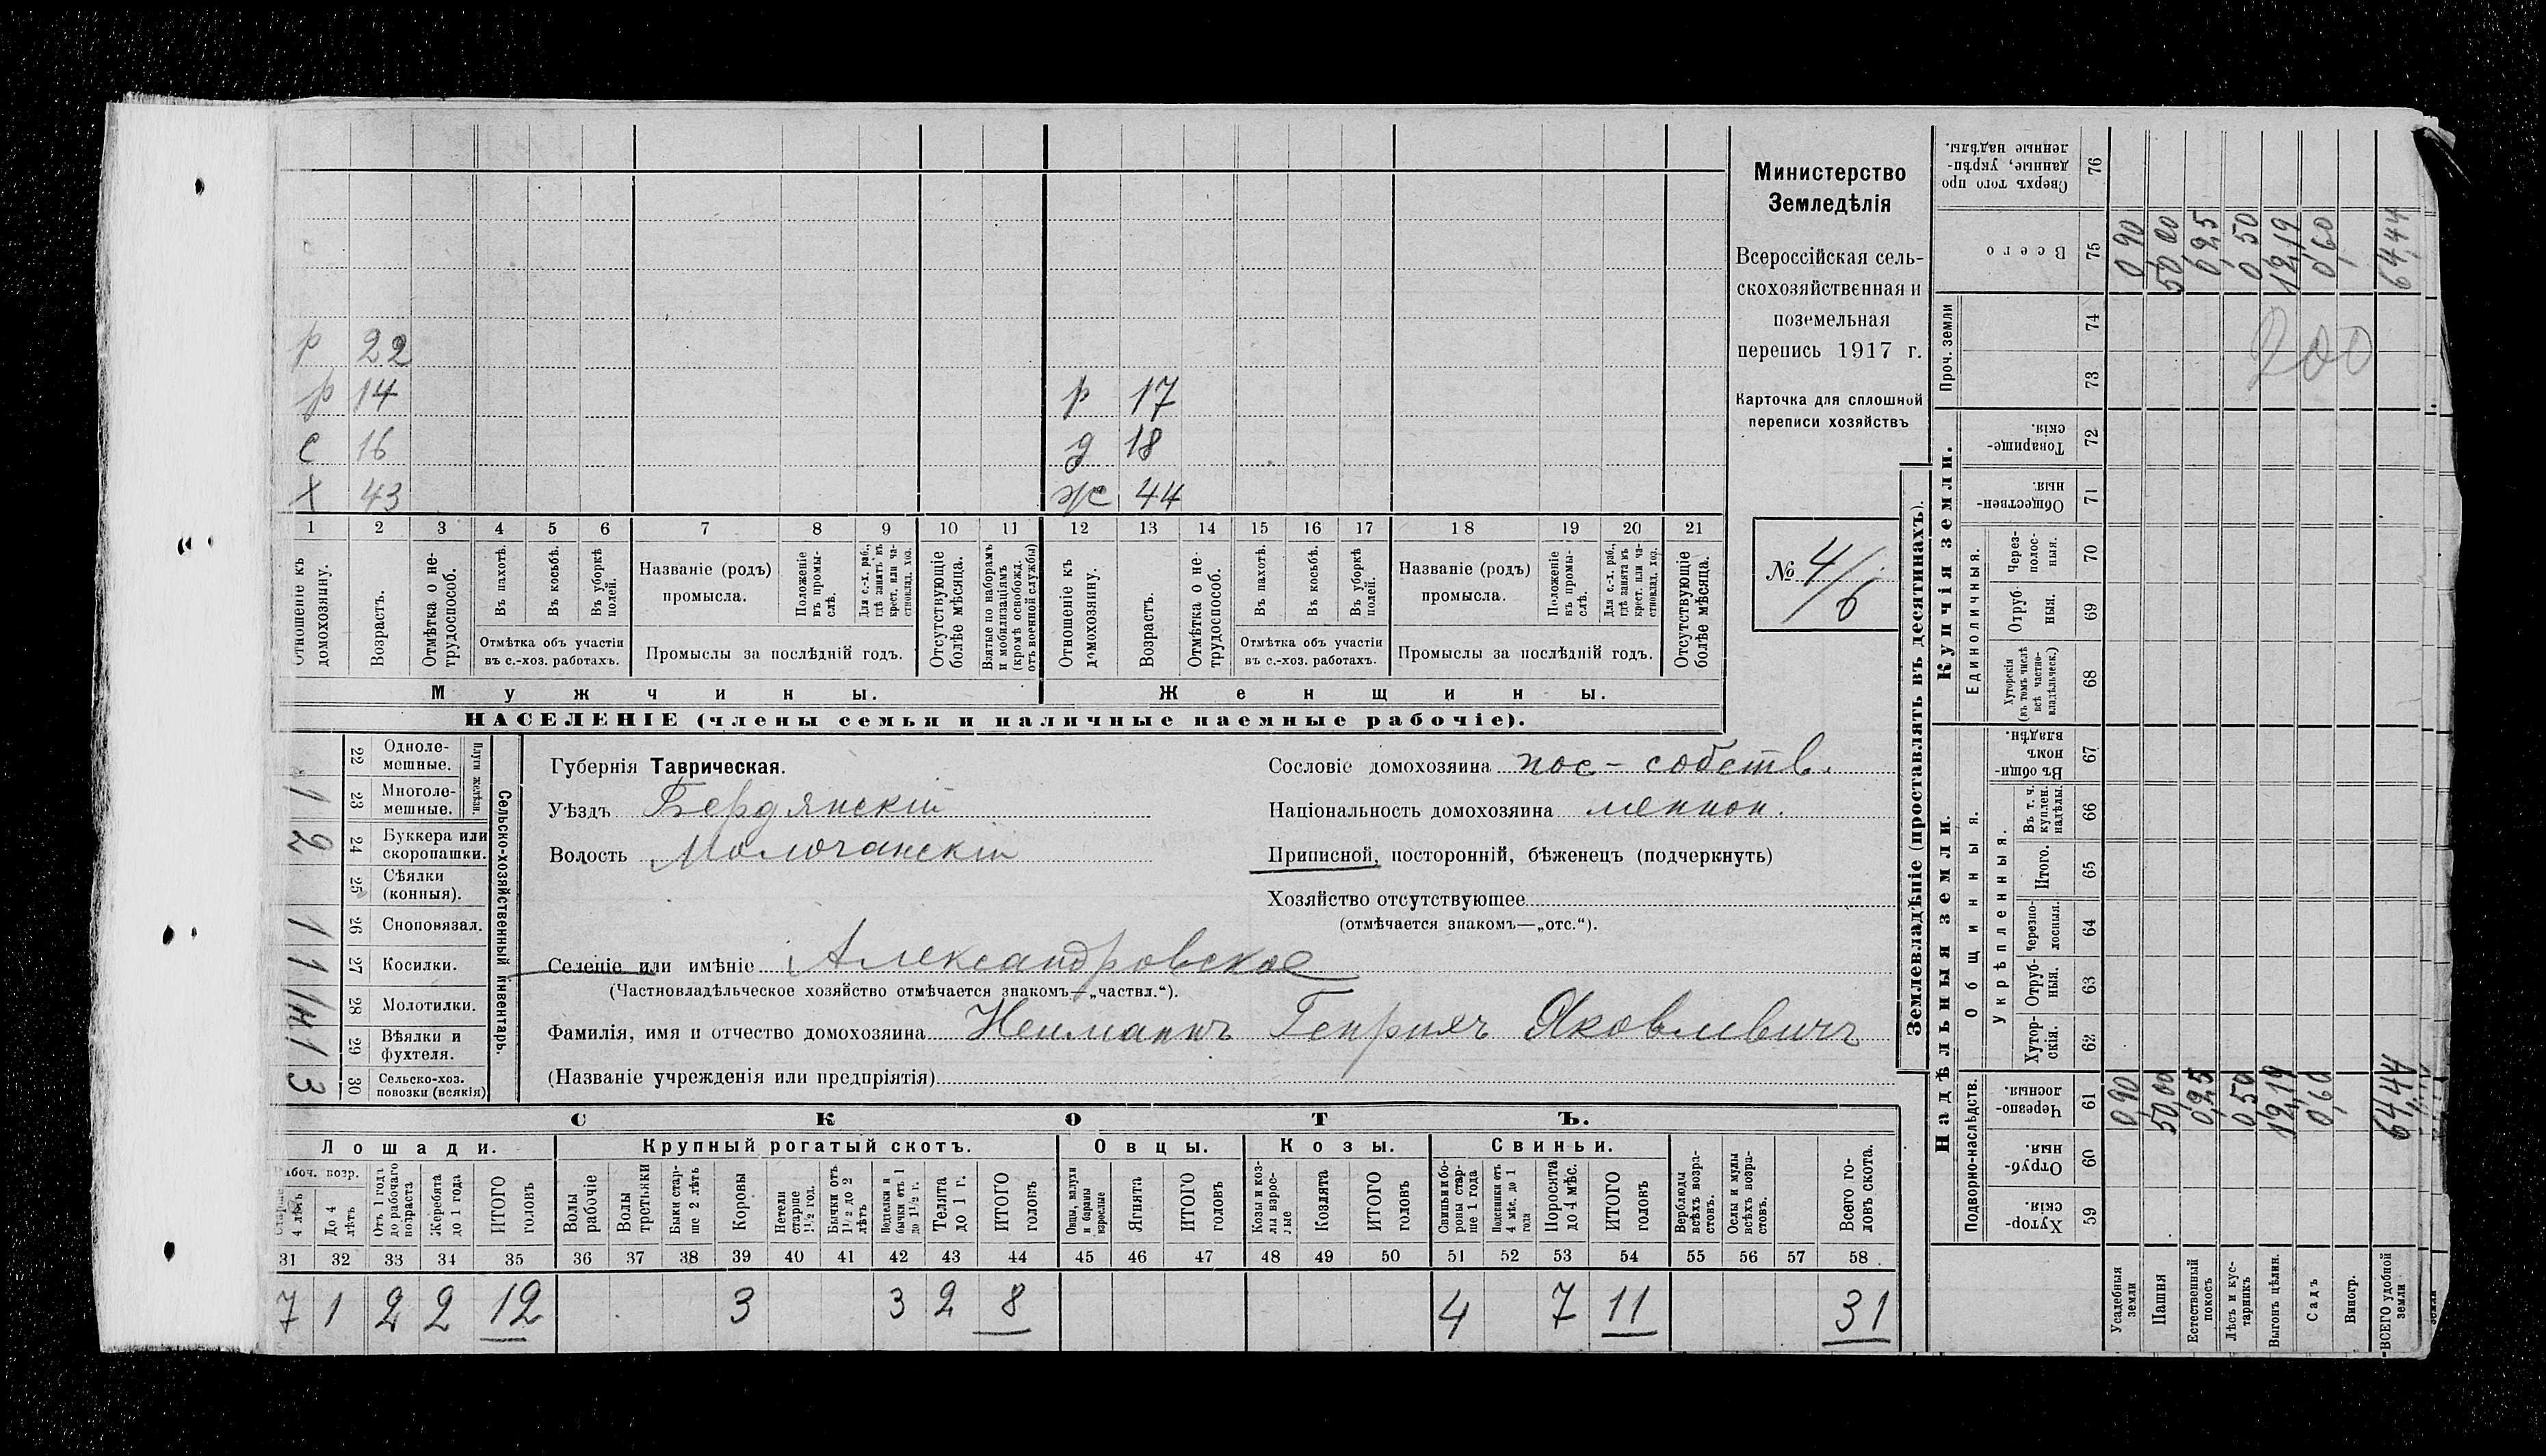 р 22
р 14 р 17
с 16 д 18
х 43 ж 44
1 2 3 4 5 6 7 8 9 10 11 12 13 14 15 16 17 18 19 20 21
Отношеніе къ домохозяину.
Возрастъ.
Отмѣтка о нетрудоспособ.
Въ пахотѣ.
Въ косьбѣ.
Въ уборкѣ полей.
Отмѣтка объ участіи
въ с.-хоз. работахъ.
Названіе (родъ)
промысла.
Положеніе въ промыслѣ.
Для с.-х. раб., гдѣ занятъ въ крест. или частновлад. хоз.
Промыслы за послѣдній годъ.
Отсутствующіе болѣе мѣсяца.
Взятые по наборамъ и мобилизаціямъ (кромѣ освобожд. отъ военной службы)
Отношеніе къ домохозяину.
Возрастъ.
Отмѣтка о нетрудоспособ.
Въ пахотѣ.
Въ косьбѣ.
Въ уборкѣ полей.
Отмѣтка объ участіи
въ с.-хоз. работахъ.
Названіе (родъ)
промысла.
Положеніе въ промыслѣ.
Для с.-х. раб., гдѣ занята въ крест. или частновлад. хоз.
Промыслы за послѣдній годъ.
Отсутствующіе болѣе мѣсяца.
Мужчины. Женщины.
НАСЕЛЕНІЕ (члены семьи и наличные наемные рабочіе).
Министерство
Земледѣлія
Всероссійская сель-
скохозяйственная и
поземельная
перепись 1917 г.
Карточка для сплошной
переписи хозяйствъ
№ 4/6
Сельско-хозяйственный инвентарь.
Плуги желѣзн.
22 Одноле-
мешные.
1 23 Многоле-
мешные.
2 24 Буккера или
скоропашки.
25 Сѣялки
(конныя).
1 26 Сноповязал.
1 27 Косилки.
28 Молотилки.
1 29 Вѣялки и
фухтеля.
3 30 Сельско-хоз.
повозки (всякія)
Губернія Таврическая.
Уѣздъ Бердянскій
Волость Молочанскій
Сословіе домохозяина пос-собств.
Національность домохозяина меннон.
Приписной, посторонній, бѣженецъ (подчеркнуть)
Хозяйство отсутствующее
(отмѣчается знакомъ—„отс.“).
Селеніе или имѣніе Александровское
(Частновладѣльческое хозяйство отмѣчается знакомъ—„частвл.“).
Фамилія, имя и отчество домохозяина Нейманнъ Генрихъ Яковлевичъ
(Названіе учрежденія или предпріятія)
СКОТЪ.
Лошади. Крупный рогатый скотъ. Овцы. Козы. Свиньи.
Рабоч. возр.
Старше 4 лѣтъ
До 4 лѣтъ
Отъ 1 года до рабочаго возраста
Жеребята до 1 года
ИТОГО головъ
Волы рабочіе
Волы третьяки
Быки старше 2 лѣтъ
Коровы
Нетели старше 1½ год.
Бычки отъ 1½ до 2 лѣтъ
Нетели и бычки отъ 1 до 1½ г.
Телята до 1 г.
ИТОГО головъ
Овцы, валухи и бараны взрослые
Ягнята
ИТОГО головъ
Козы и козлы взрослые
Козлята
ИТОГО головъ
Свиньи и боровы старше 1 года
Подсвинки отъ 4 мѣс. до 1 года
Поросята до 4 мѣс.
ИТОГО головъ
Верблюды всѣхъ возрастовъ.
Ослы и мулы всѣхъ возрастовъ.
Всего головъ скота.
31 32 33 34 35 36 37 38 39 40 41 42 43 44 45 46 47 48 49 50 51 52 53 54 55 56 57 58
7 1 2 2 12 3 3 2 8 4 7 11 31
Землевладѣніе (проставлять въ десятинахъ).
Купчія земли.
Надѣльныя земли.
Проч. земли
Единоличныя.
Общинныя.
Укрѣпленныя.
Подворно-наслѣдств.
Сверхъ того проданные, укрѣпленные надѣлы. 76
Всего 75 0,90 50,00 0,25 0,50 12,19 0,60 64,44
74
73
200
Товарищескія. 72
Общественныя. 71
Черезполосныя. 70
Отрубныя. 69
Хуторскія (въ томъ числѣ всѣ частновладѣльческ.) 68
Въ общинномъ владѣн. 67
Въ т. ч. куплен. надѣлы. 66
Итого. 65
Черезполосныя. 64
Отрубныя. 63
Хуторскія. 62
Черезполосныя. 61 0,90 50,00 0,25 0,50 12,19 0,60 64,44
Отрубныя. 60
Хуторскія. 59
Усадебныя земли
Пашня
Естественный покосъ
Лѣсъ и кустарникъ
Выгонъ цѣлин.
Садъ
Виногр.
ВСЕГО удобной земли